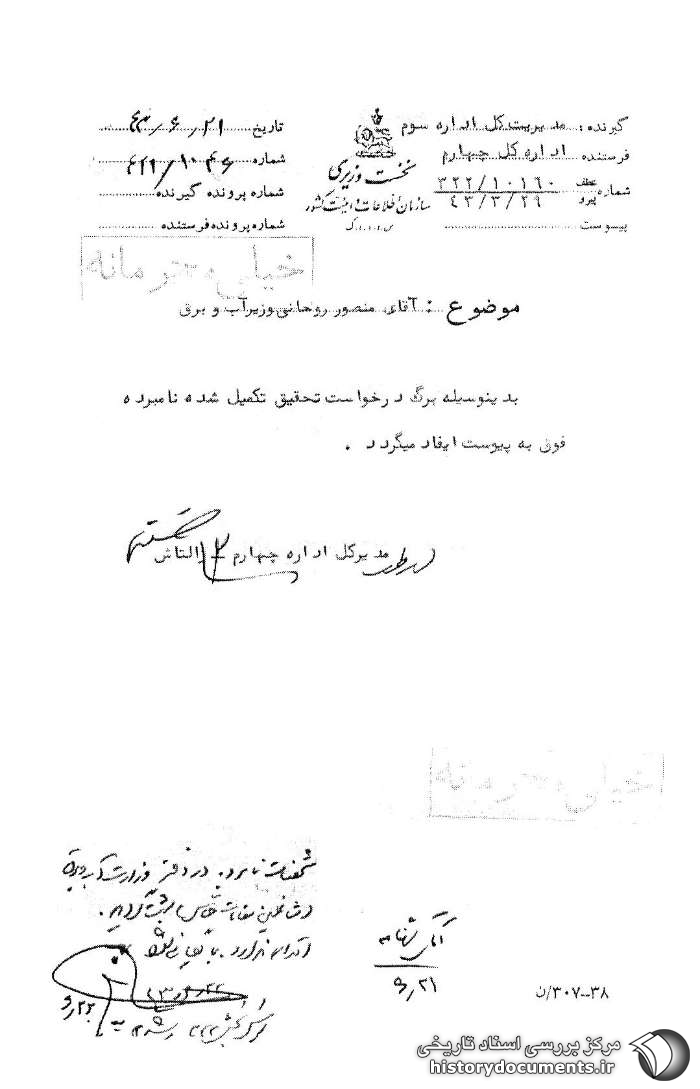 گیرنده : مدیریت کل اداره سوم
فرستنده اداره کل چهارم
شماره عطف ۳۲۲/۱۰۱٦۰
پیرو ٤۳/۳/۲۹
پیوست
نخست وزیری
سازمان اطلاعات و امنیت کشور
س.ا.و.ا.ک
تاریخ ۴۳/۶/۲۱
شماره ۴۲۱/۱۰۴۶
شماره پرونده گیرنده
شماره پرونده فرستنده
خیلی محرمانه
موضوع : آقای منصور روحانی وزیر آب و برق
بدینوسیله برگ درخواست تحقیق تکمیل شده نامبرده
فوق به پیوست ایفاد میگردد .
مدیرکل اداره چهارم
خیلی محرمانه
در دفتر وزارت
۶/۲۱
۶/۲۲
۳۰۷-۳۸/ن
مرکز بررسی اسناد تاریخی
historydocuments.ir